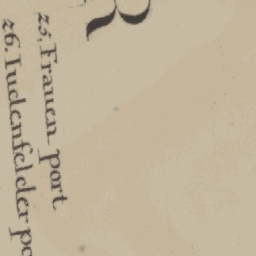 R
25. Frauen port
26. Iudenfelder po